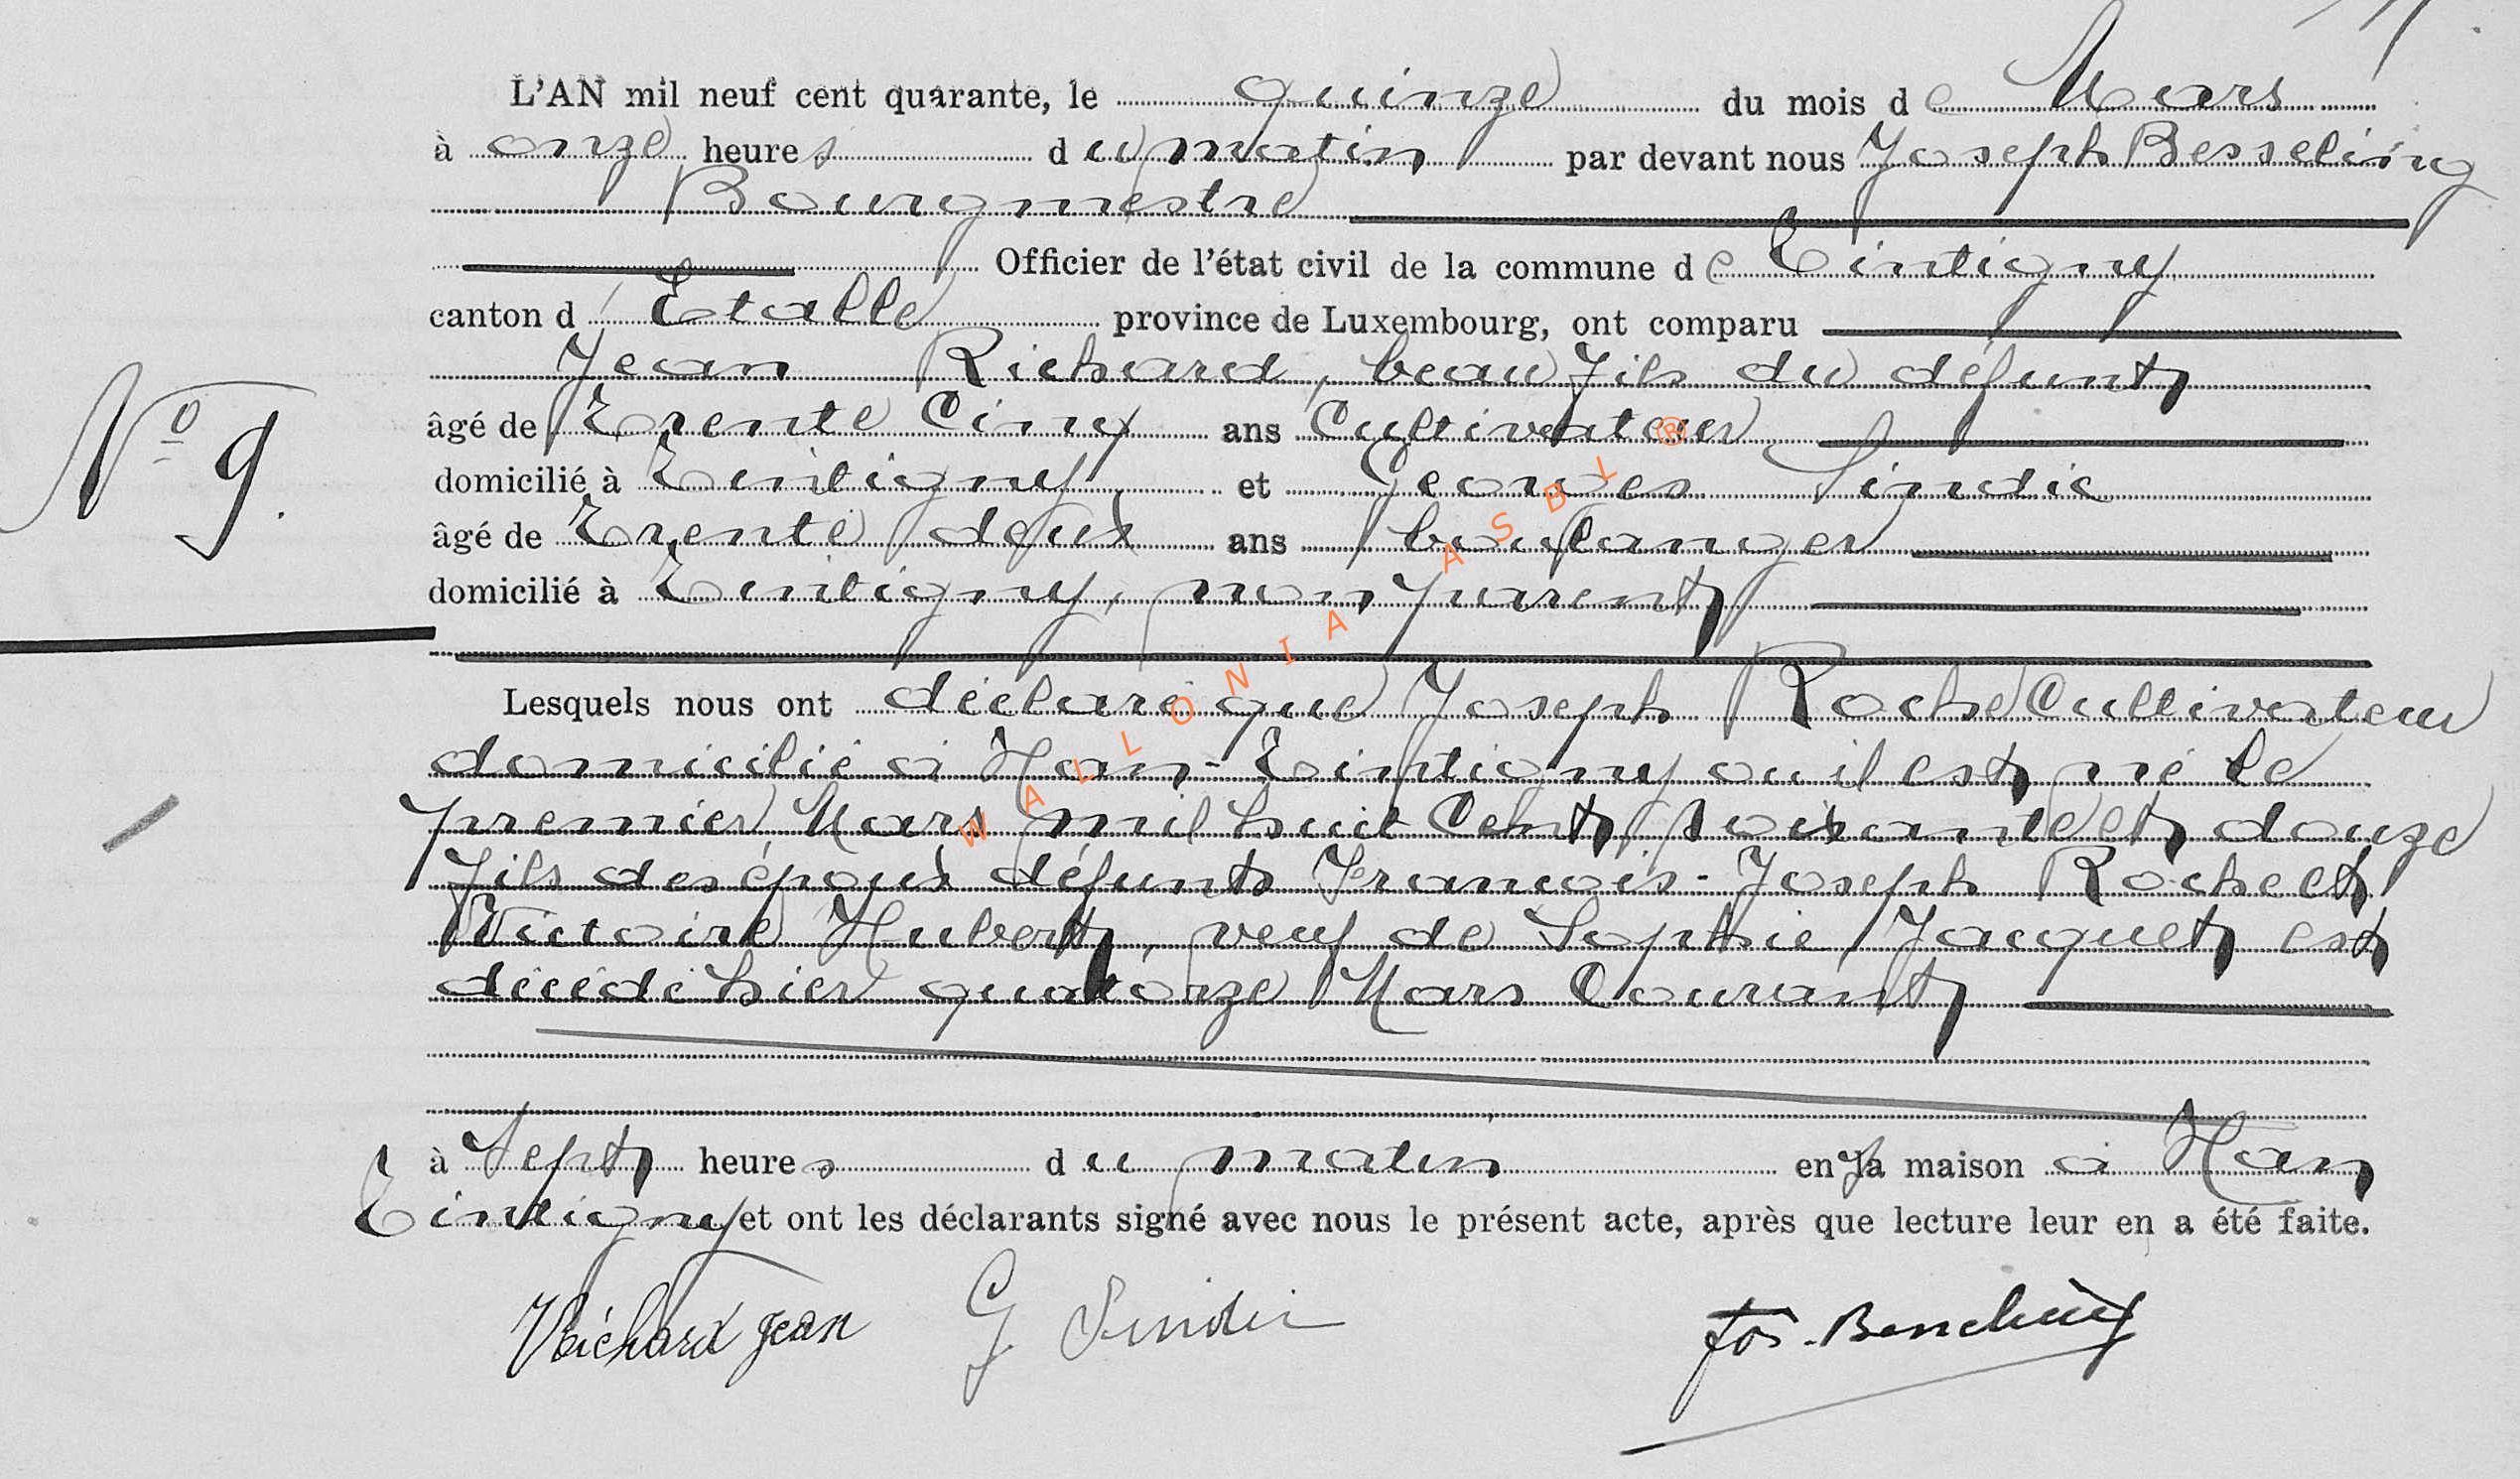 L'AN mil neuf cent quarante, le quinze du mois de Mars
à onze heures du matin par devant nous Joseph Besseling
Bourgmestre
Officier de l'état civil de la commune de Tintigny
canton d'Etalle province de Luxembourg, ont comparu
Jean Richard, beau fils du défunt
âgé de Trente Cinq ans Cultivateur
domicilié à Tintigny et Georges Sindic
N° 9.
âgé de Trente deux ans boulanger
domicilié à Tintigny, non parent
Lesquels nous ont déclaré que Joseph Roche Cultivateur
domicilié à Han-Tintigny ou il est né le
premier Mars mil huit Cent soixante et douze
fils des époux défunts François-Joseph Roche et
Victoire Hubert, veuf de Sophie Jacquet est
décédé hier quatorze Mars Courant
à Sept heures du matin en sa maison à Han
Tintigny et ont les déclarants signé avec nous le présent acte, après que lecture leur en a été faite.
Richard Jean G Sindic Jos. Besseling
WALLONIA ASBL ®